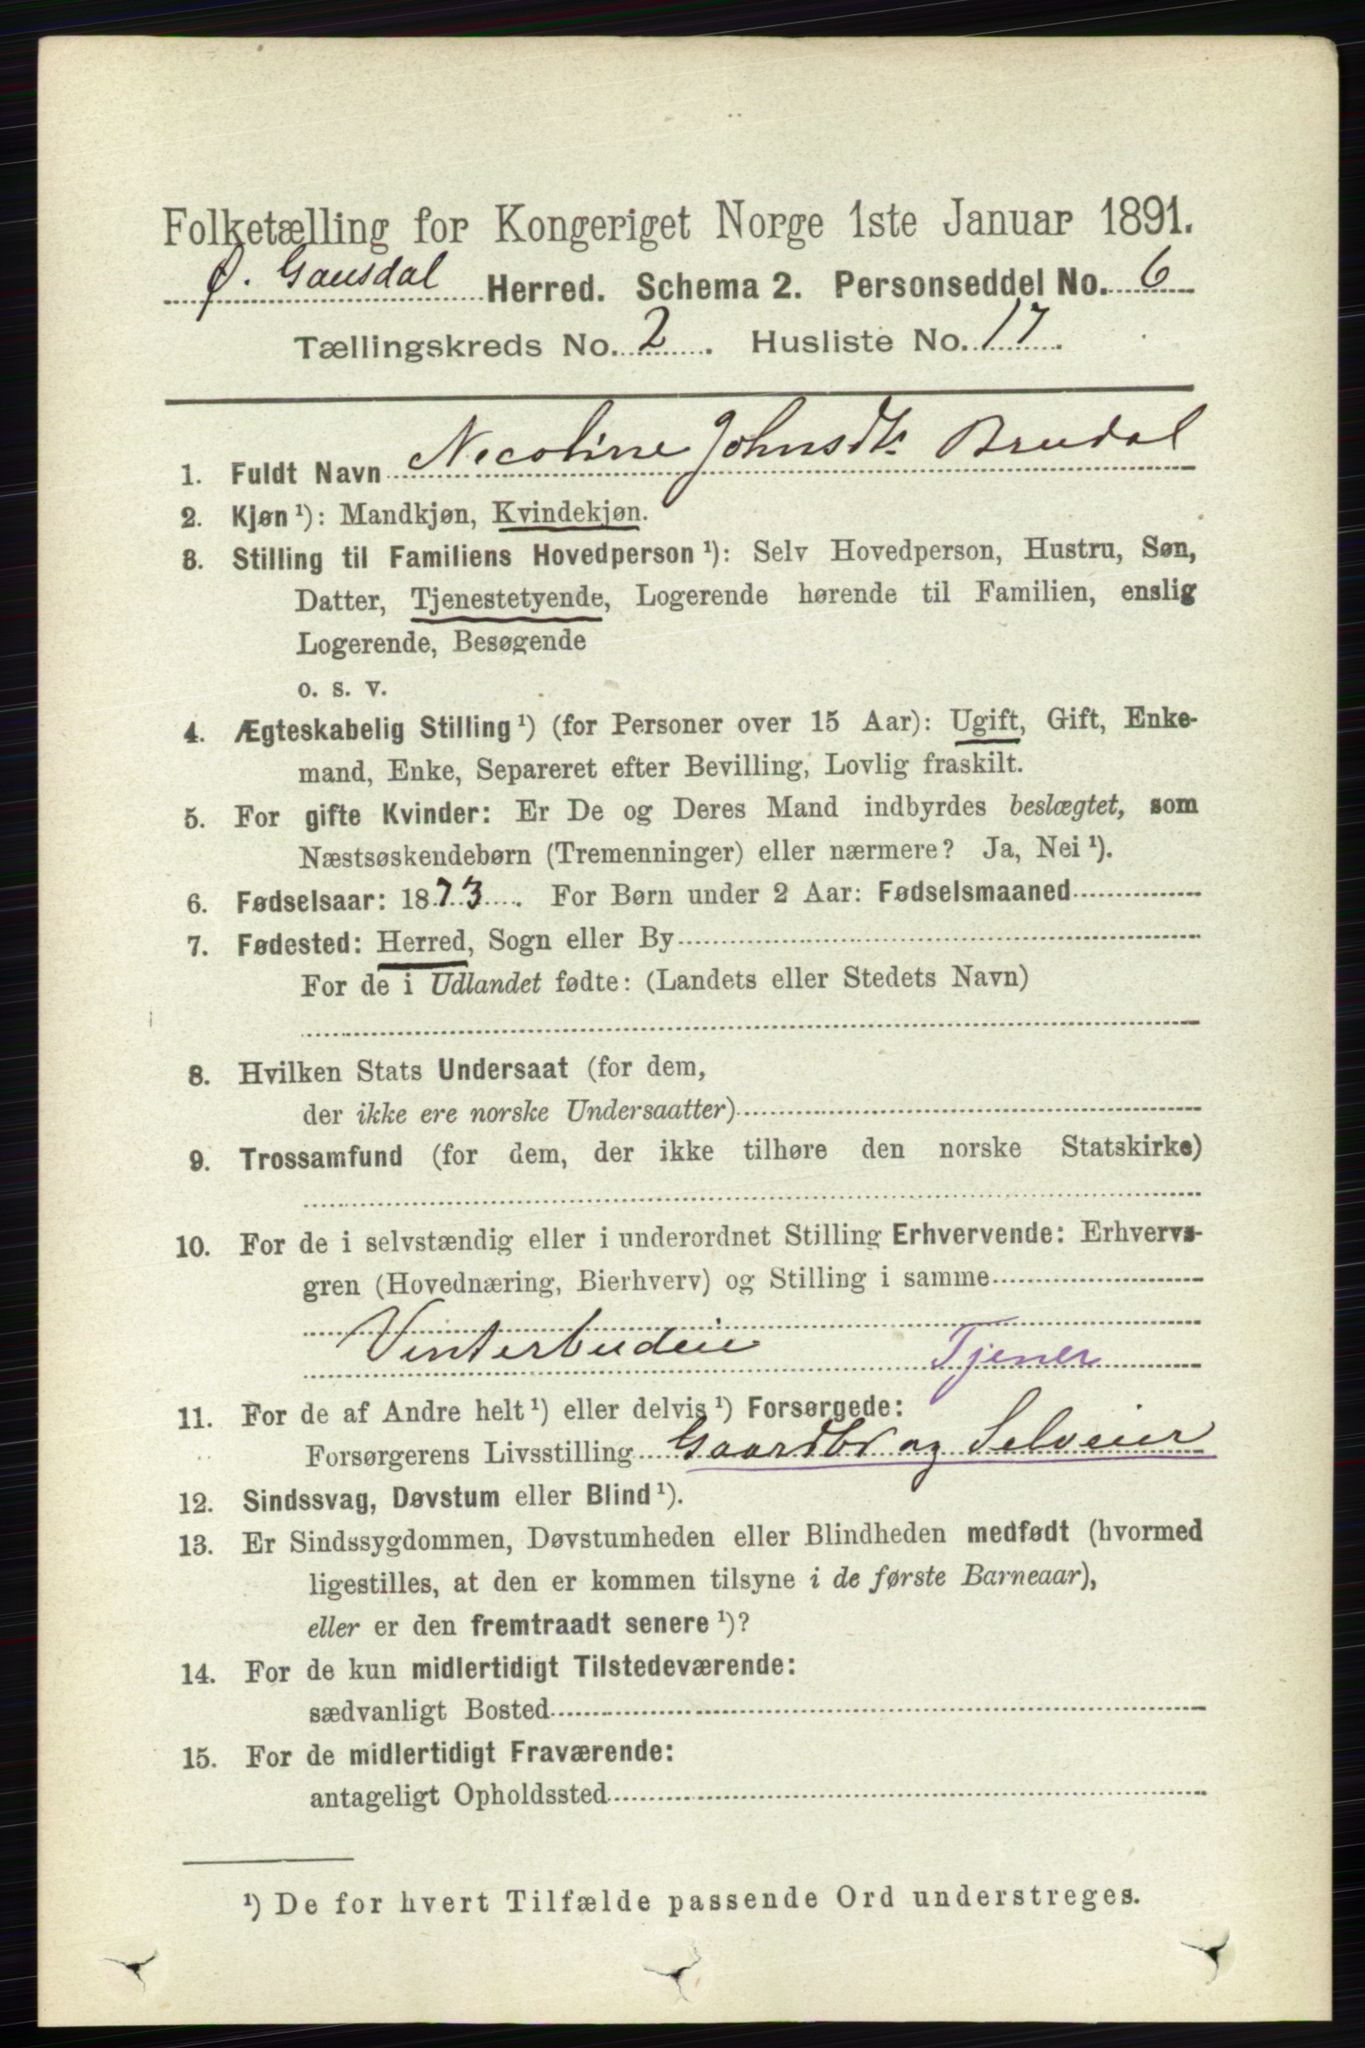 Folketælling for Kongeriget Norge 1ste Januar 1891.
Ø. Gausdal Herred. Schema 2. Personseddel No. 6
Tællingskreds No. 2. Husliste No. 17.
1. Fuldt Navn Nicoline Johnsdtr Brudal
2. Kjøn ¹): Mandkjøn, Kvindekjøn.
3. Stilling til Familiens Hovedperson ¹): Selv Hovedperson, Hustru, Søn,
Datter, Tjenestetyende, Logerende hørende til Familien, enslig
Logerende, Besøgende
o. s. v.
4. Ægteskabelig Stilling ¹) (for Personer over 15 Aar): Ugift, Gift, Enke-
mand, Enke, Separeret efter Bevilling, Lovlig fraskilt.
5. For gifte Kvinder: Er De og Deres Mand indbyrdes beslægtet, som
Næstsøskendebørn (Tremenninger) eller nærmere? Ja, Nei ¹).
6. Fødselsaar: 1873. For Børn under 2 Aar: Fødselsmaaned
7. Fødested: Herred, Sogn eller By
For de i Udlandet fødte: (Landets eller Stedets Navn)
8. Hvilken Stats Undersaat (for dem,
der ikke ere norske Undersaatter)
9. Trossamfund (for dem, der ikke tilhøre den norske Statskirke)
10. For de i selvstændig eller i underordnet Stilling Erhvervende: Erhvervs-
gren (Hovednæring, Bierhverv) og Stilling i samme
Vinterbudeie Tjener
11. For de af Andre helt ¹) eller delvis ¹) Forsørgede:
Forsørgerens Livsstilling Gaardbr og Selveier
12. Sindssvag, Døvstum eller Blind ¹).
13. Er Sindssygdommen, Døvstumheden eller Blindheden medfødt (hvormed
ligestilles, at den er kommen tilsyne i de første Barneaar),
eller er den fremtraadt senere ¹)?
14. For de kun midlertidigt Tilstedeværende:
sædvanligt Bosted
15. For de midlertidigt Fraværende:
antageligt Opholdssted
¹) De for hvert Tilfælde passende Ord understreges.